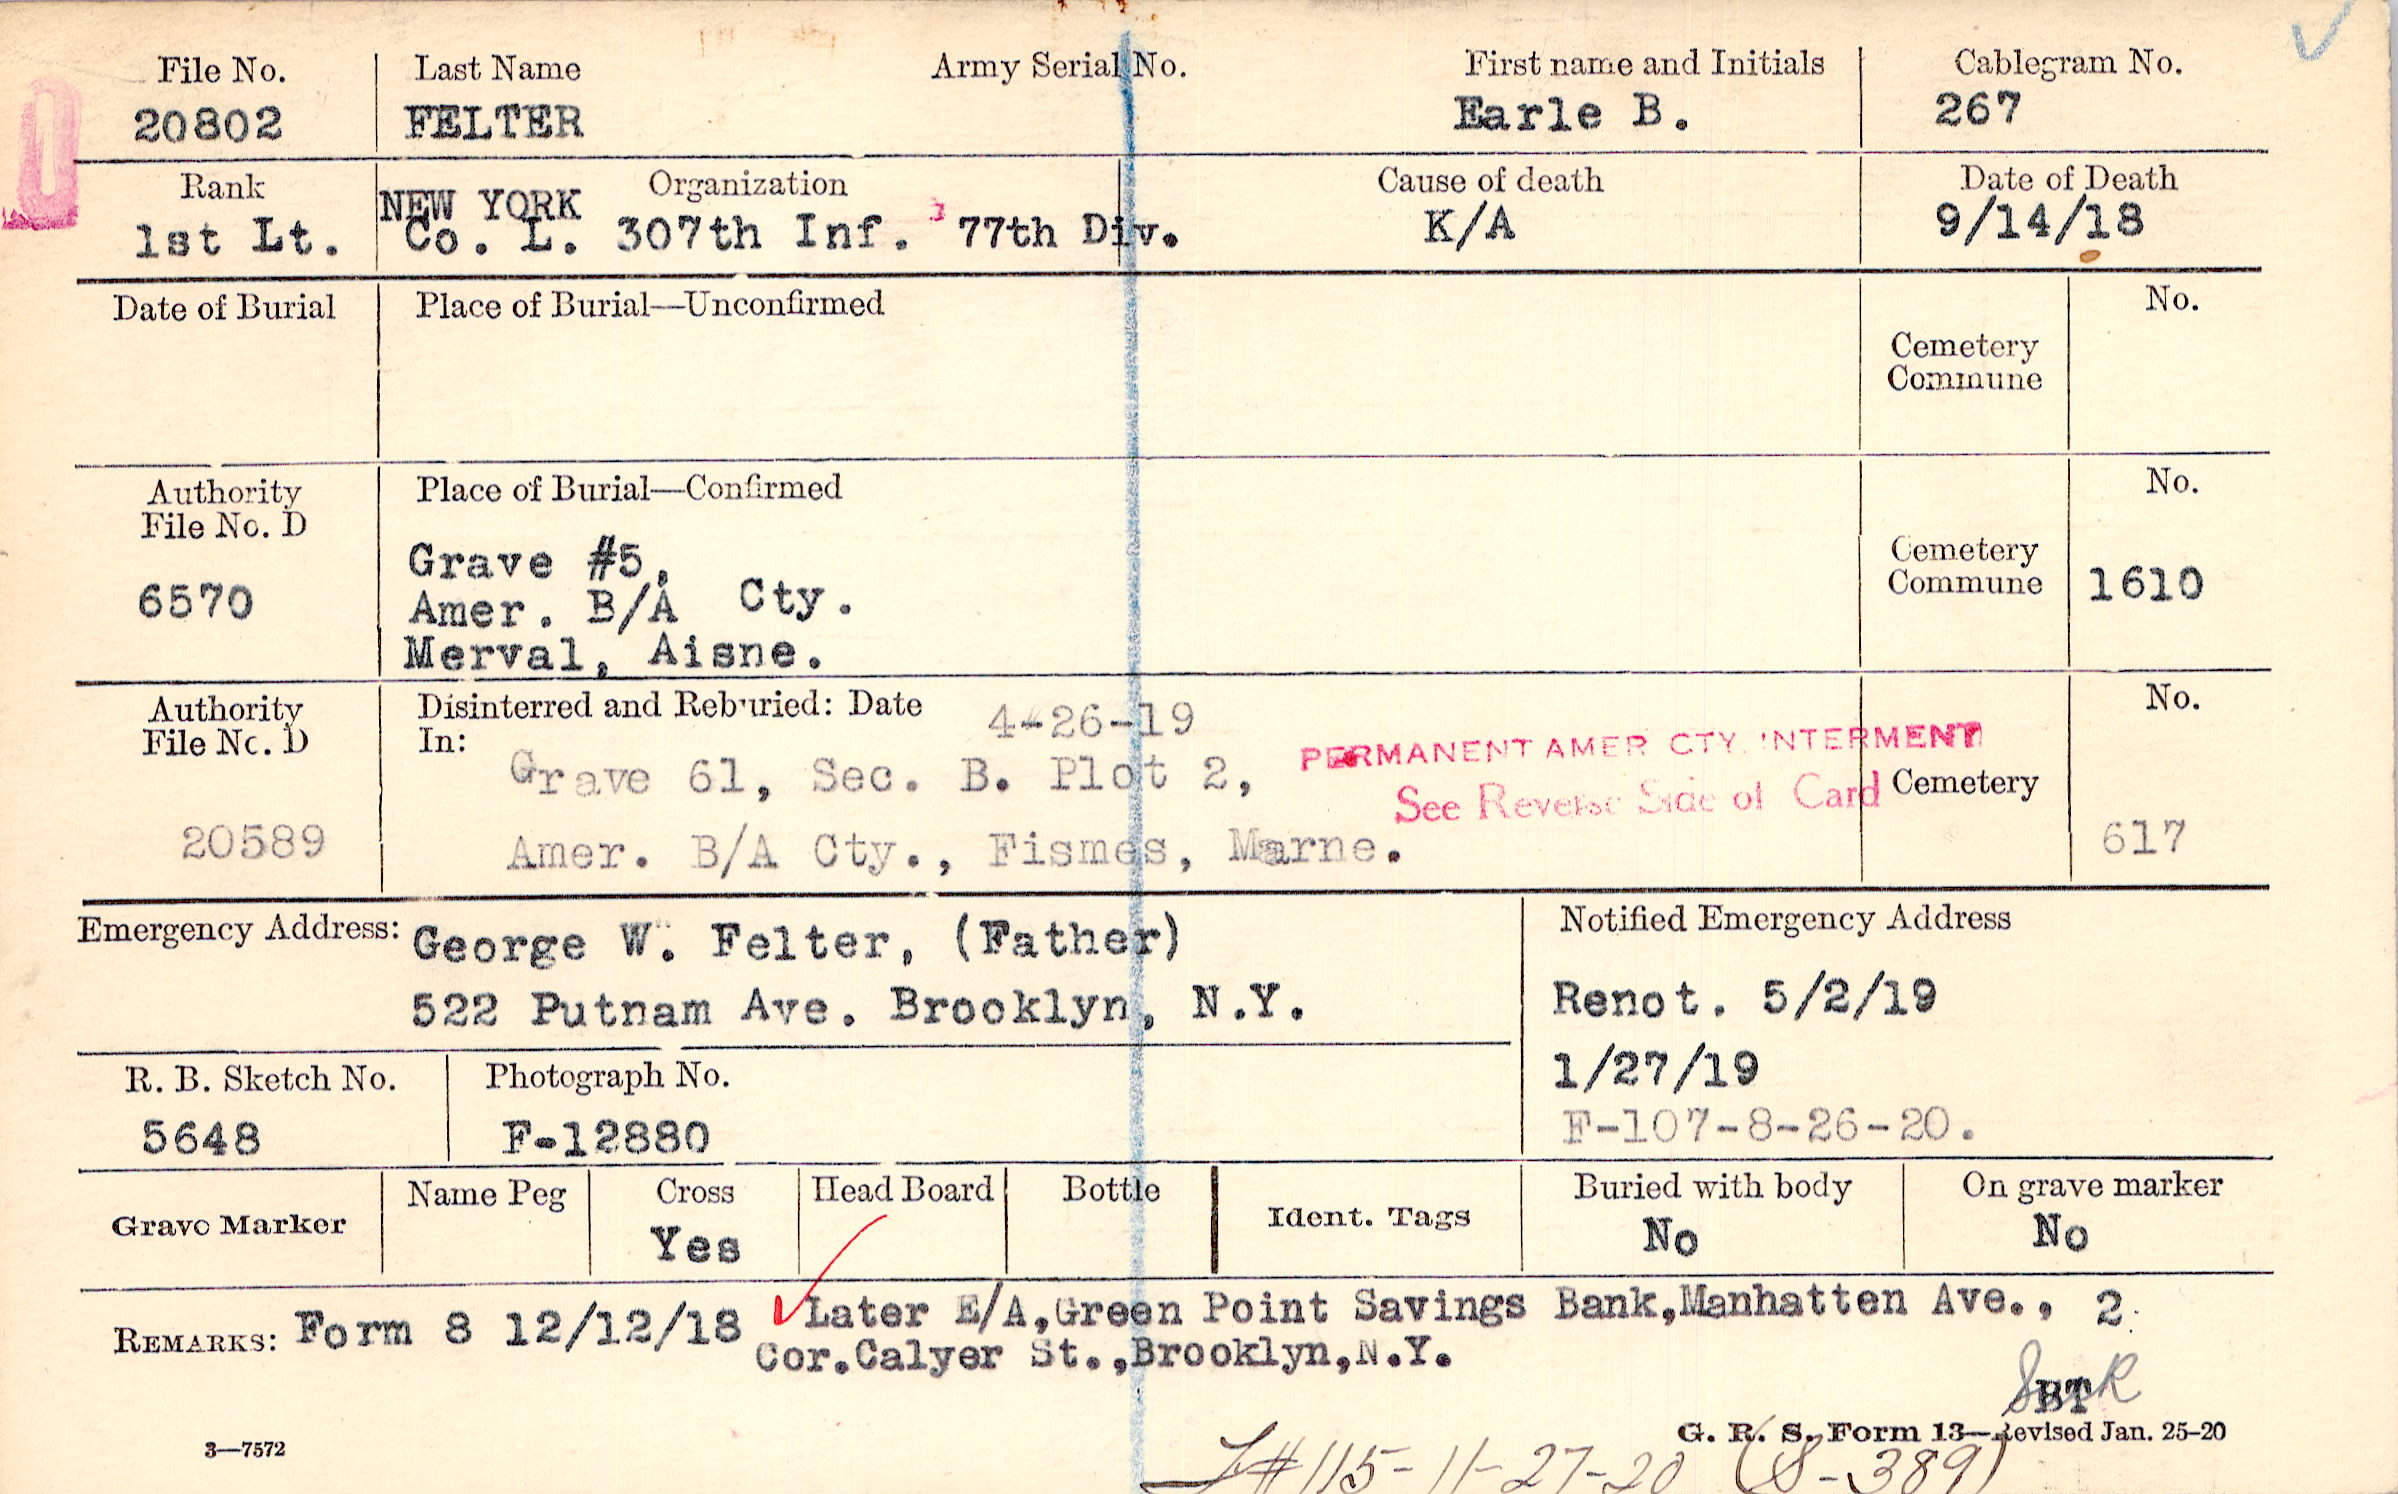 File No. Last Name Army Serial No. First name and Initials Cablegram No.
20802 FELTER Earle B. 267
Rank NEW YORK Organization Cause of death Date of Death
1st Lt. Co. L. 307th Inf. 77th Div. K/A 9/14/18
Date of Burial Place of Burial—Unconfirmed No.
Cemetery
Commune
Authority Place of Burial—Confirmed No.
File No. D
Grave #5, Cemetery
6570 Amer. B/A Cty. Commune 1610
Merval, Aisne.
Authority Disinterred and Reburied: Date 4-26-19 No.
File No. D In:
PERMANENT AMER CTY. INTERMENT
Grave 61, Sec. B. Plot 2, See Reverse Side of Card Cemetery
20589 Amer. B/A Cty., Fismes, Marne. 617
Emergency Address: George W. Felter, (Father) Notified Emergency Address
522 Putnam Ave. Brooklyn, N.Y. Renot. 5/2/19
R. B. Sketch No. Photograph No. 1/27/19
5648 F-12880 F-107-8-26-20.
Grave Marker Name Peg Cross Head Board Bottle Ident. Tags Buried with body On grave marker
Yes No No
REMARKS: Form 8 12/12/18 Later E/A,Green Point Savings Bank,Manhatten Ave., 2.
Cor.Calyer St.,Brooklyn,N.Y.
BT
3—7572 G. R. S. Form 13—Revised Jan. 25-20
#115-11-27-20 (S-389)